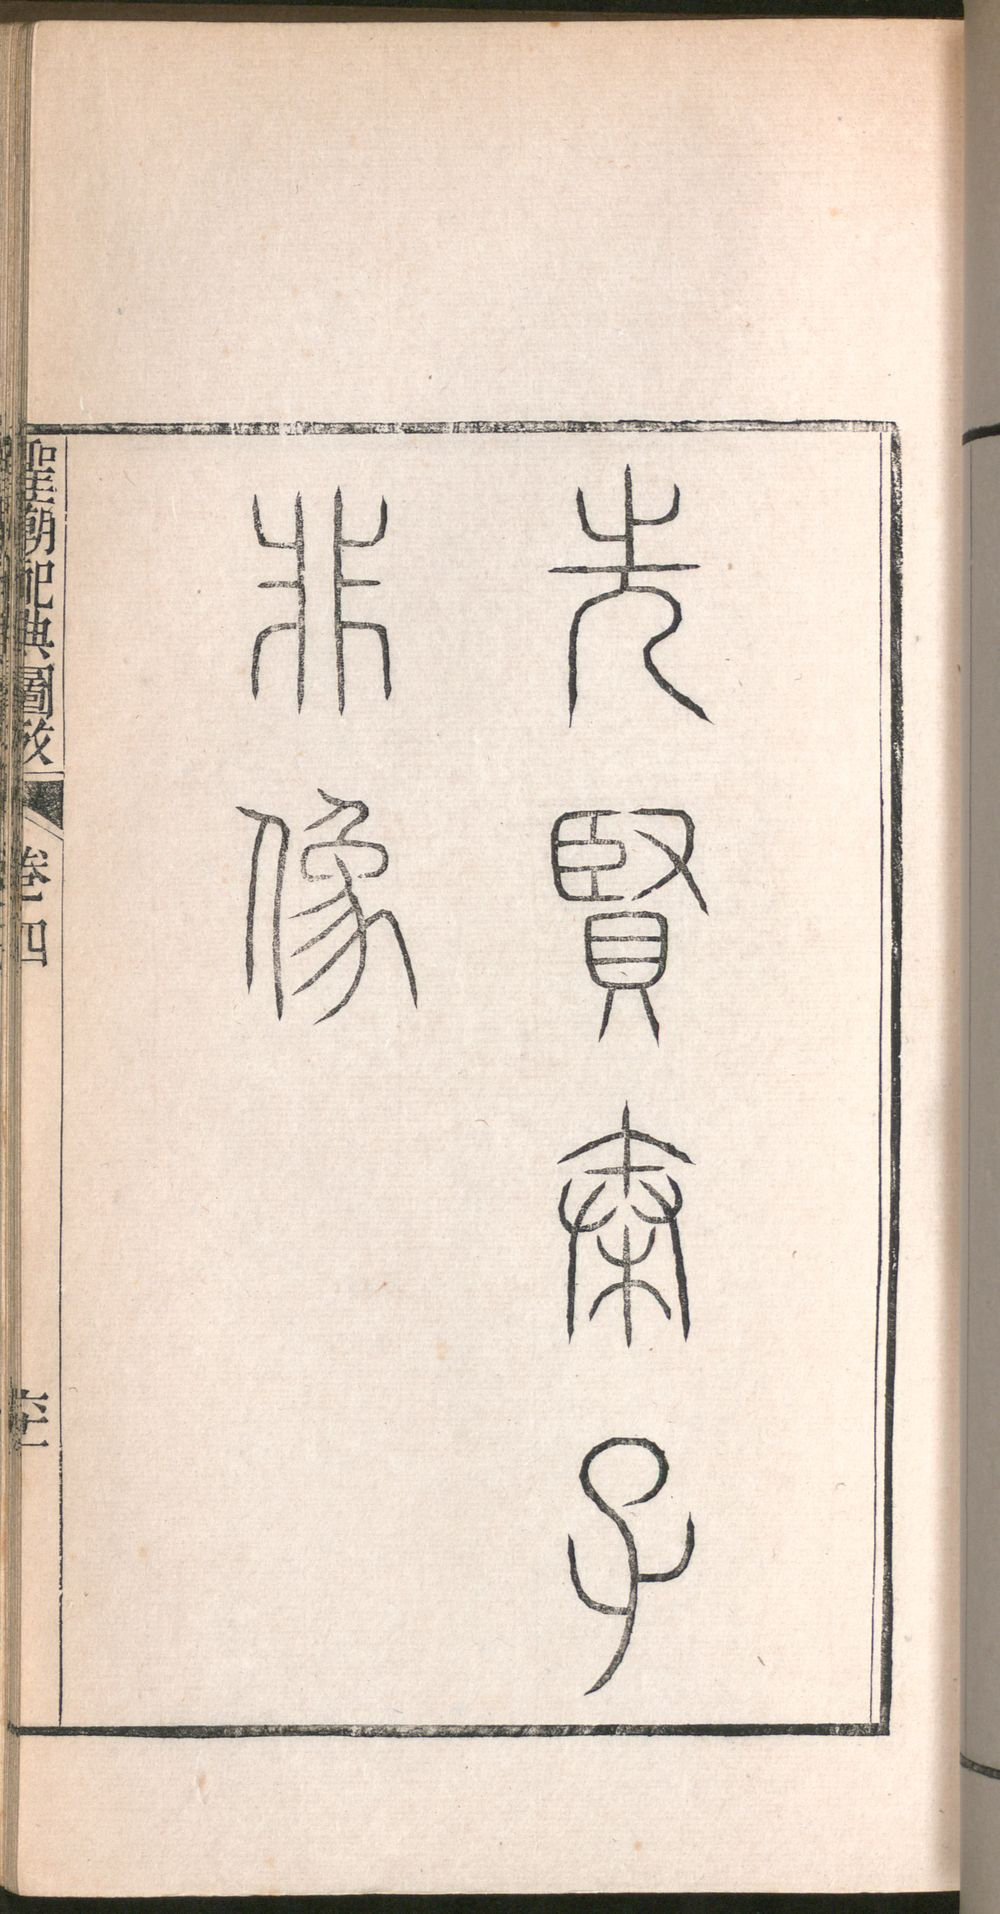 先賢秦子
非像
聖廟祀典圖攷
卷四